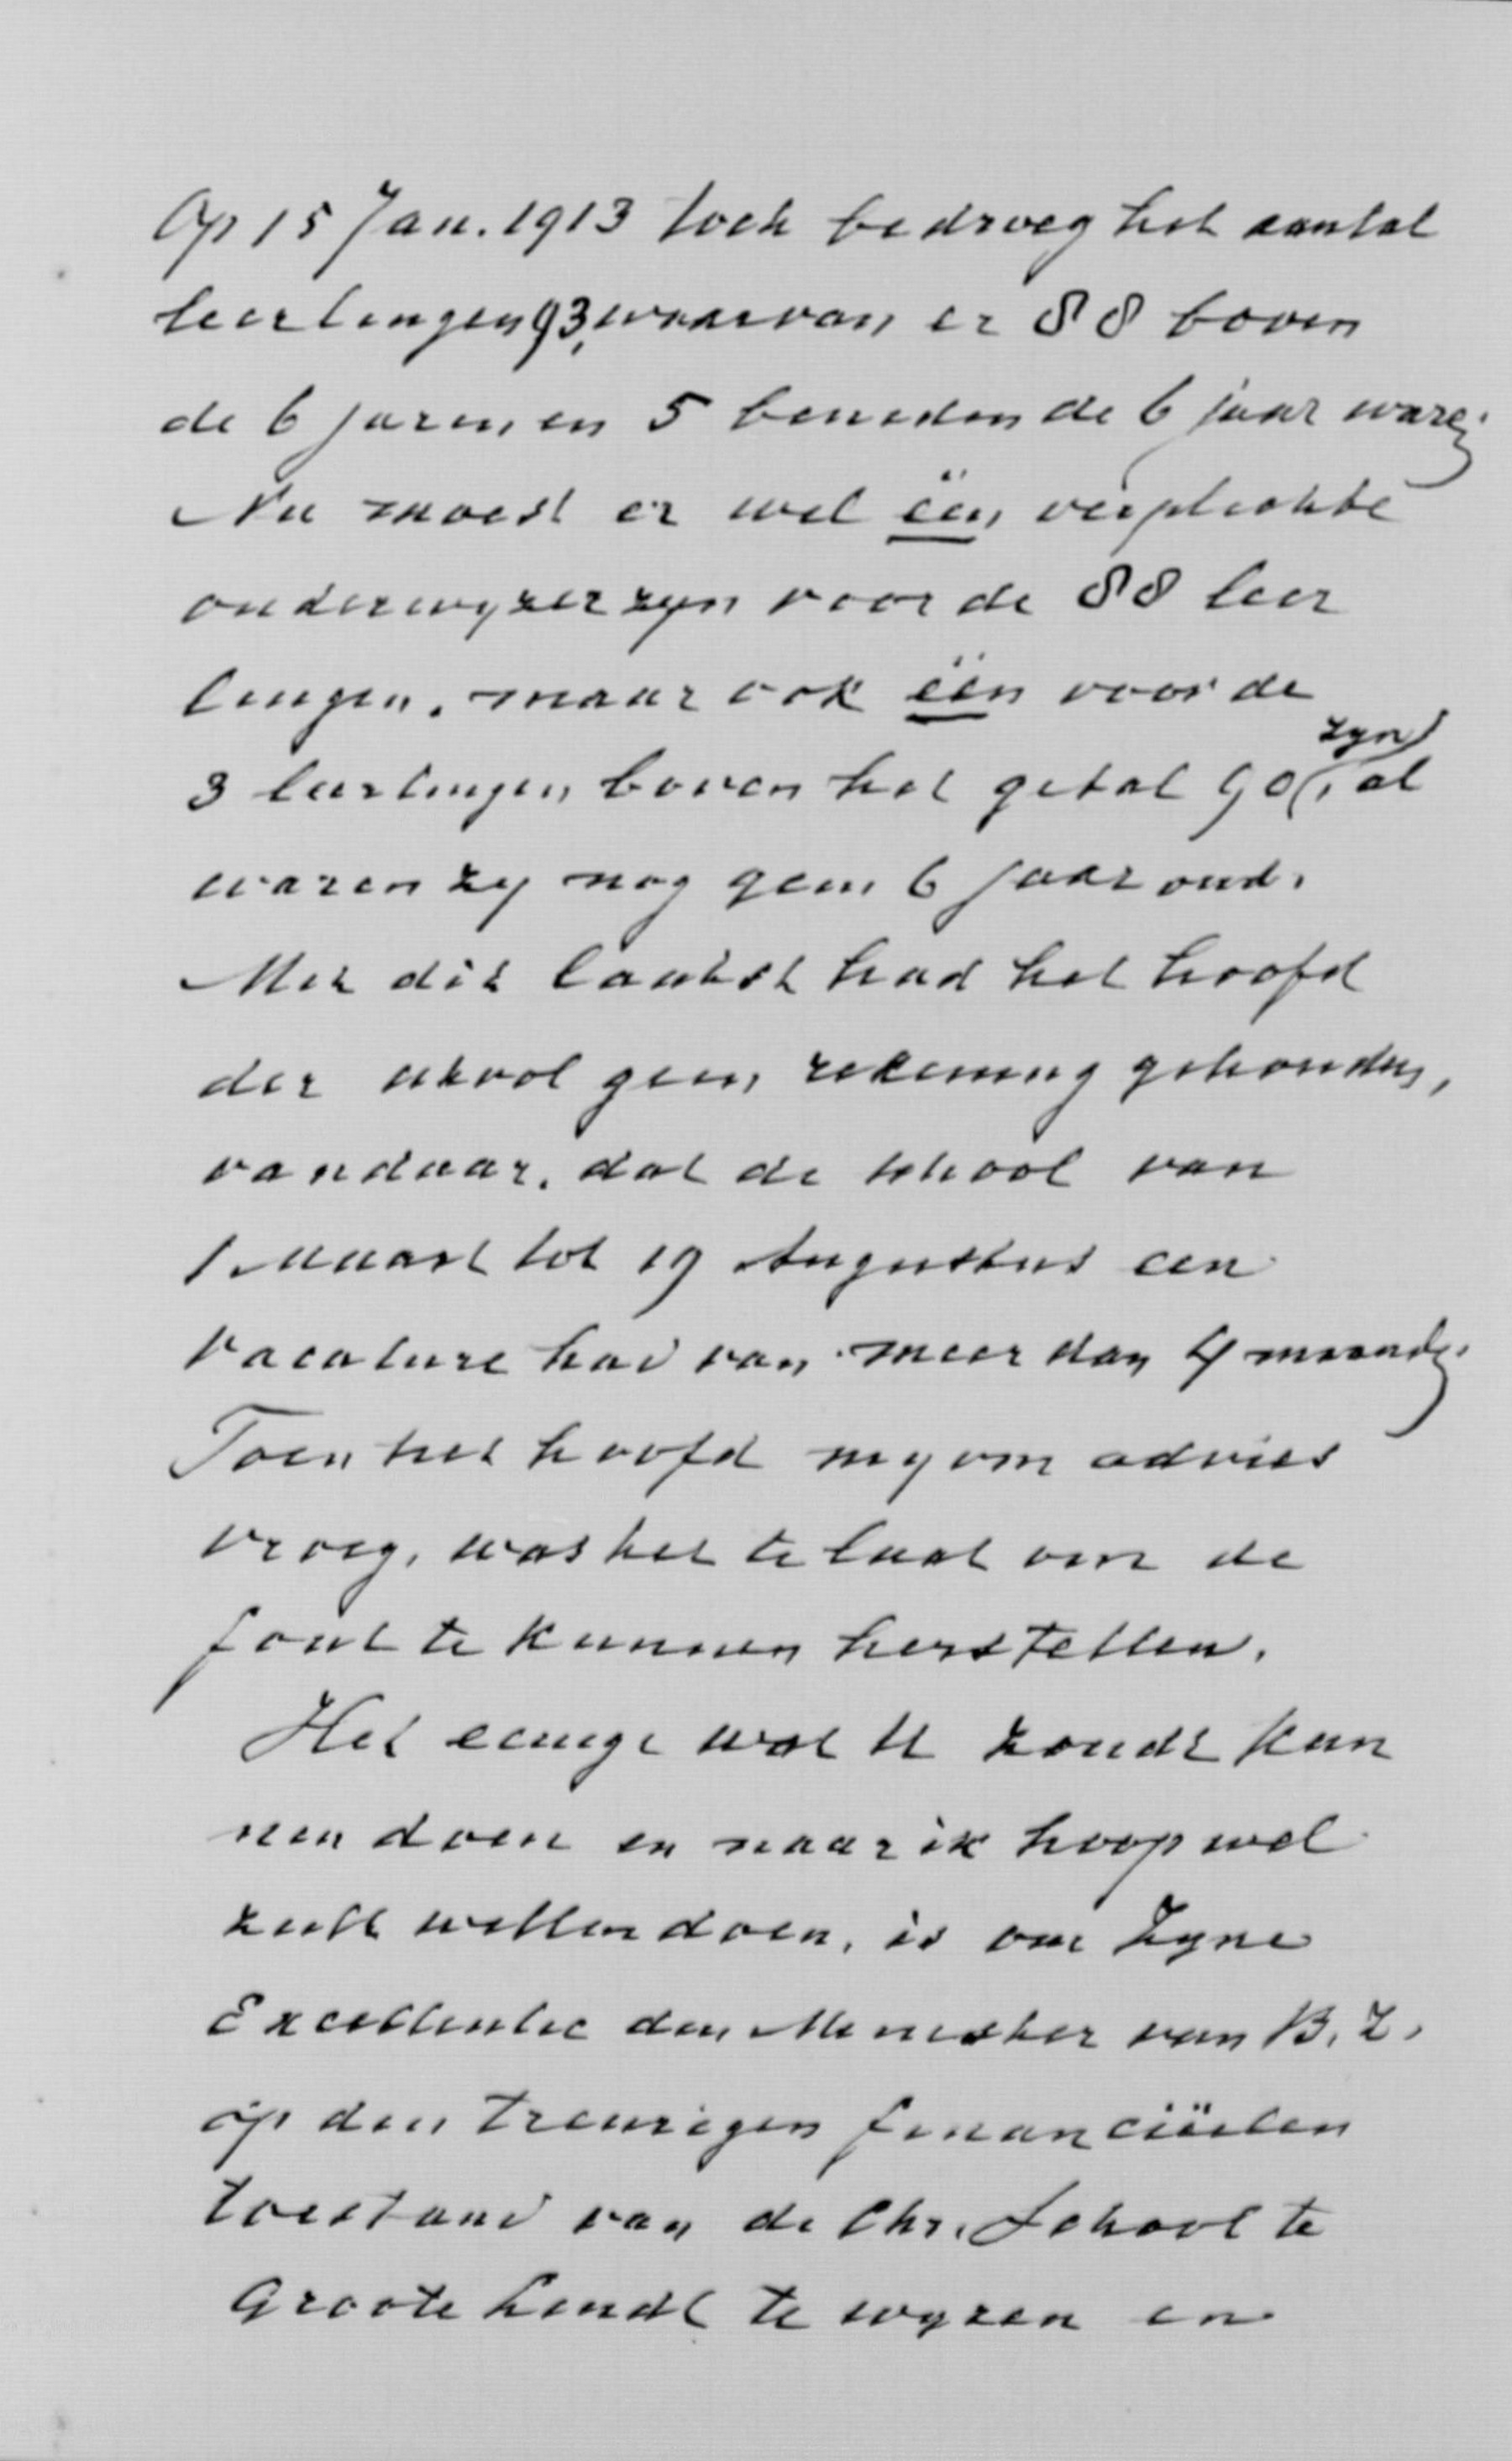 Op 15 Jan. 1913 toch bedroeg het aantal
leerlingen 93, waarvan er 88 boven
de 6 jaren en 5 beneden de 6 jaar waren.
Nu moest er wel één verplichte
onderwyzer zyn voor de 88 leer
lingen, maar ook één voor de
zyn
3 leerlingen boven het getal 90, al
waren zy nog geen 6 jaar oud.
Met dit laatste had het hoofd
der school geen rekening gehouden,
vandaar, dat de school van
1 Maart tot 19 Augustus een
vacature had van meer dan 4 maanden.
Toen het hoofd my om advies
vroeg, was het te laat om de
fout te kunnen herstellen.
Het eenige wat U zoudt kun
nen doen en naar ik hoop wel
zult willen doen, is om Zyne
Excellentie den Minister van B. Z.
op den treurigen financiëelen
toestand van de Chr. School te
Groote Lindt te wyzen en